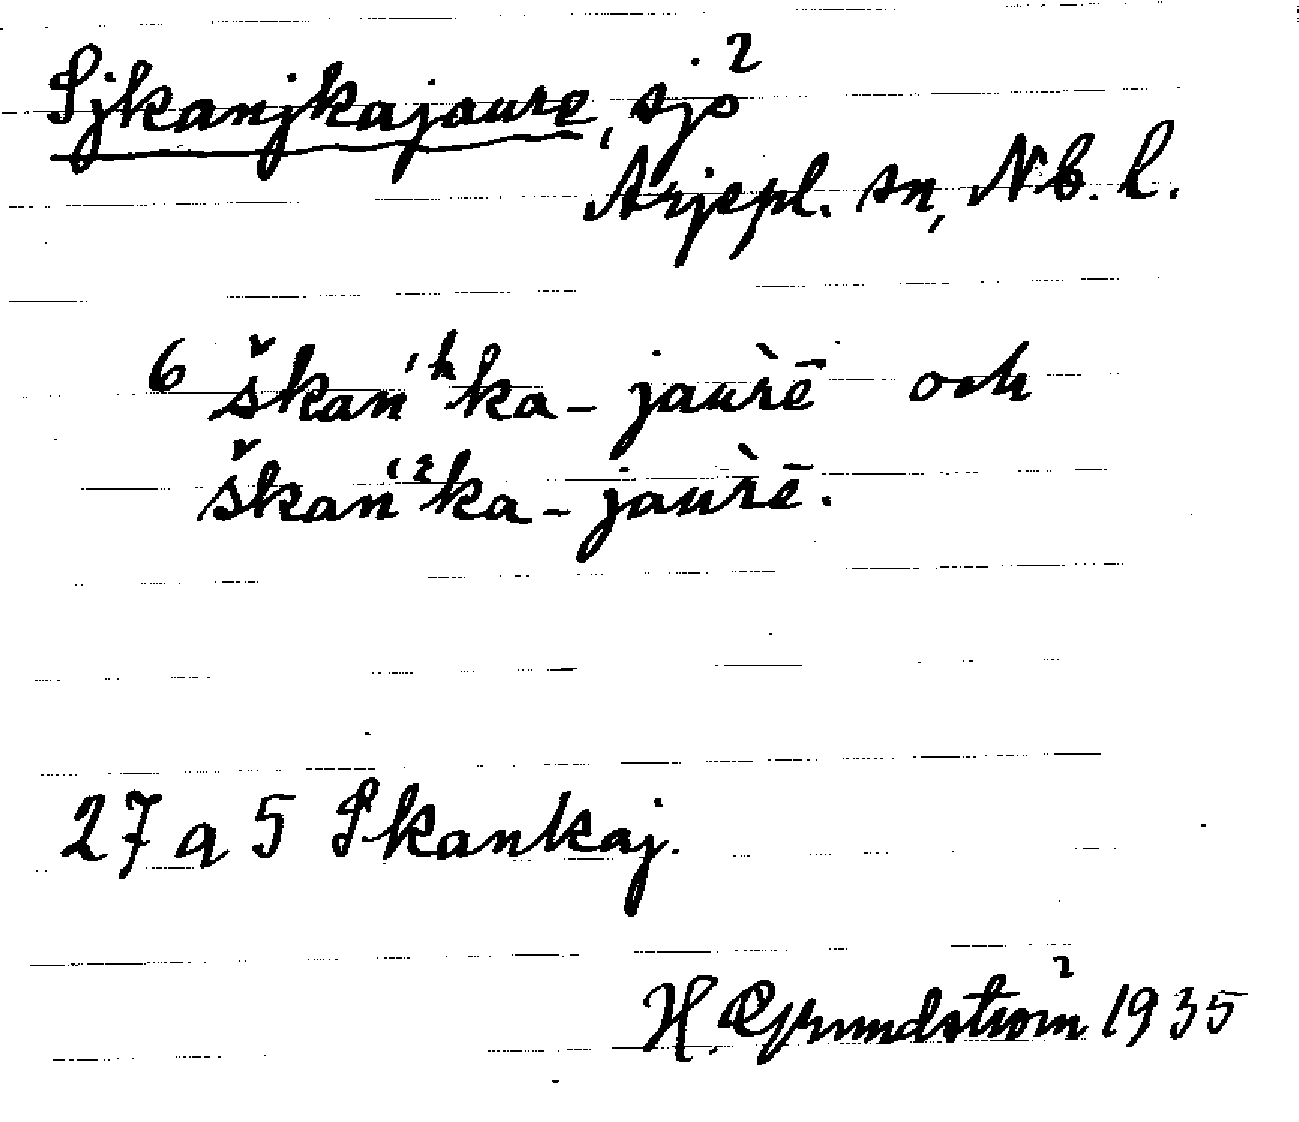 Sjkanjkajaure, sjö
Arjepl. sn, Nb. l.
6 škań'ʰka-jaùrē och
škań'ᵋka-jaùrē.
27 a 5 Skankaj.
H. Grundström 1935